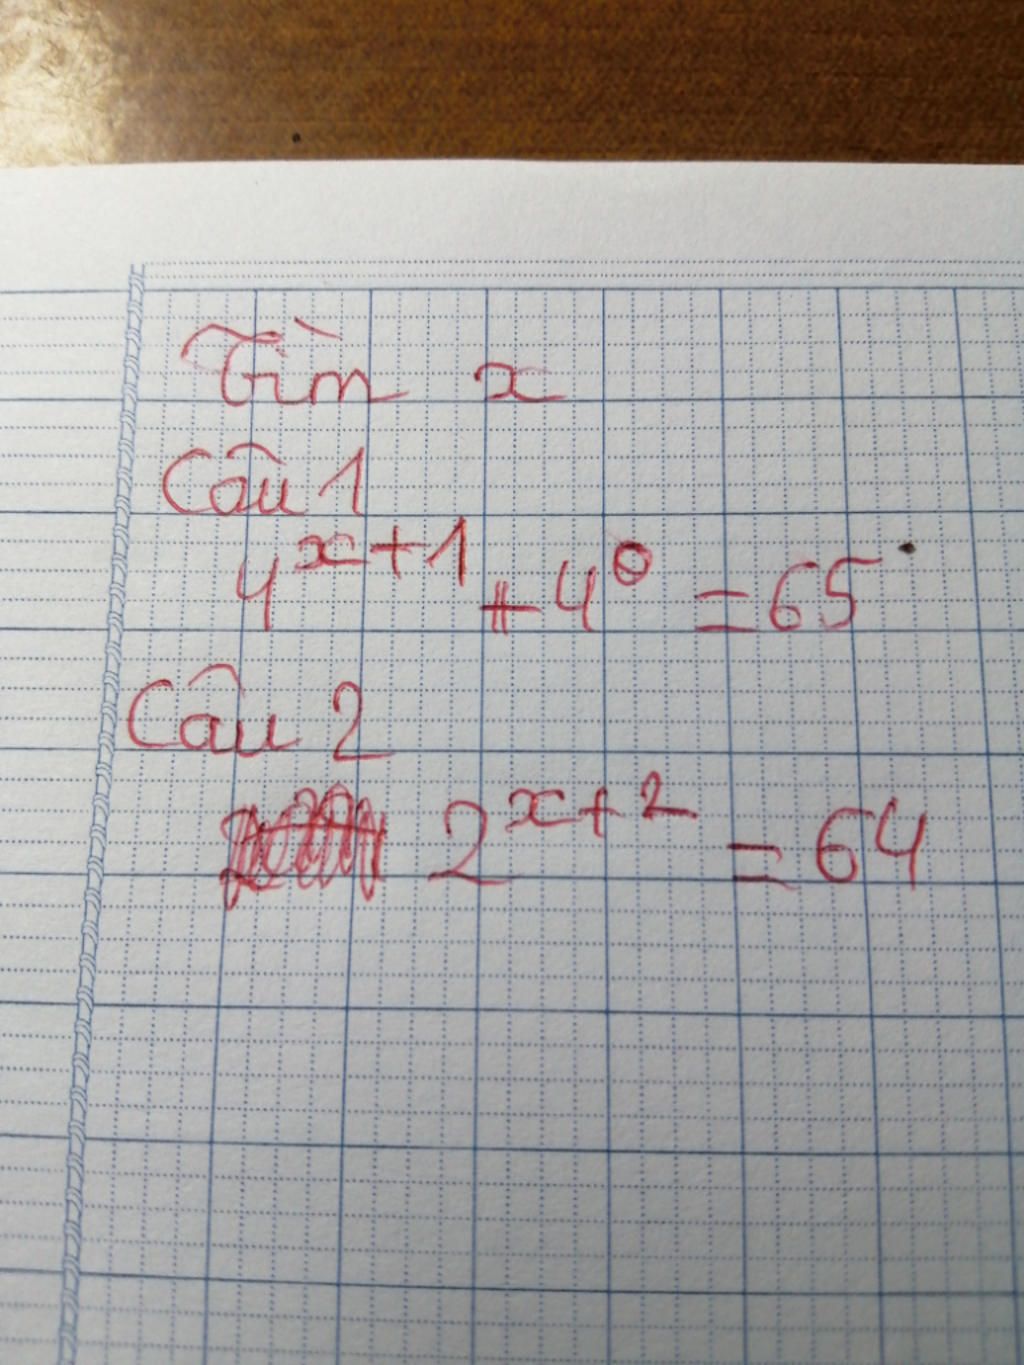 Tìm x
Câu 1
4^{x+1} + 4^0 = 65
Câu 2
2^{x+2} = 64